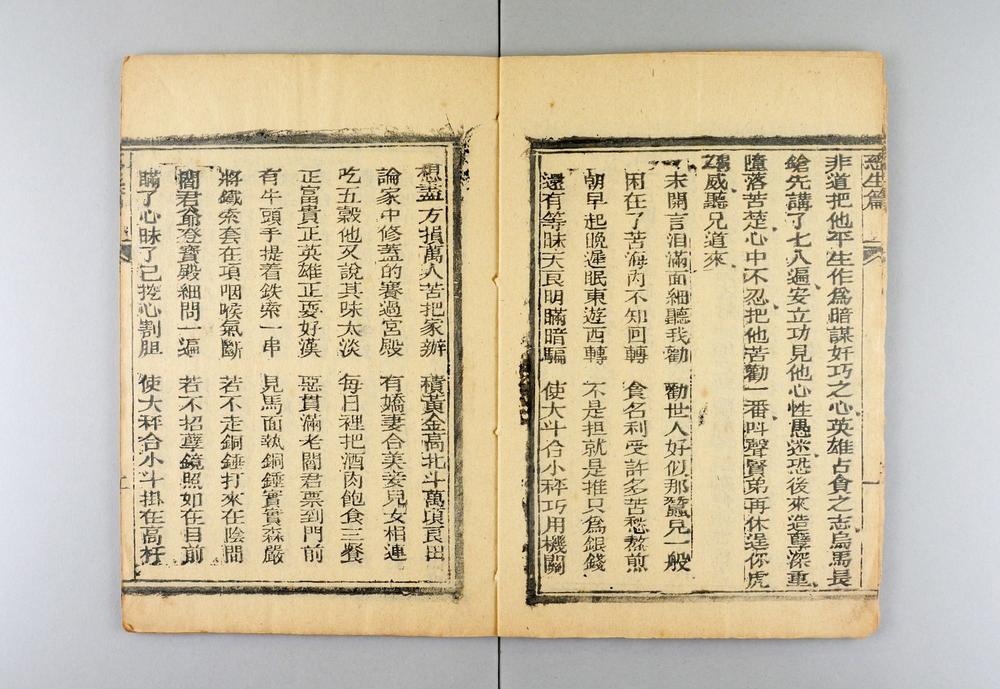 非道把他平生作為暗謀奸巧之心英雄占貪之志烏馬長
鎗先講了七八遍安立功見他心性愚迷恐後來造孽深重
墮落苦楚心中不忍把他苦勸一番呌聲賢弟再休逞你虎
威聽兄道來
未開言泪滿面細聽我勸 勸世人好似那蠶兒一般
困在了苦海內不知回轉 食名利受許多苦愁熬煎
朝早起晚遲眠東遊西轉 不是担就是推只為銀錢
還有等昧天良明瞞暗騙 使大斗合小秤巧用機關
想盡方損萬人苦把家辦 積黃金高北斗萬頃良田
論家中修蓋的賽過宮殿 有嬌妻合美妾兒女相連
吃五穀他又說其味太淡 每日裡把酒肉飽食三餐
正富貴正英雄正耍好漢 惡貫滿老閻君票到門前
有牛頭手提着鉄索一串 見馬面執銅錘實實森嚴
將鐵索套在項咽喉氣斷 若不走銅錘打來在陰間
閻君爺登寶殿細問一遍 若不招孽鏡照如在目前
瞞了心昧了己挖心割胆 使大秤合小斗掛在高杆